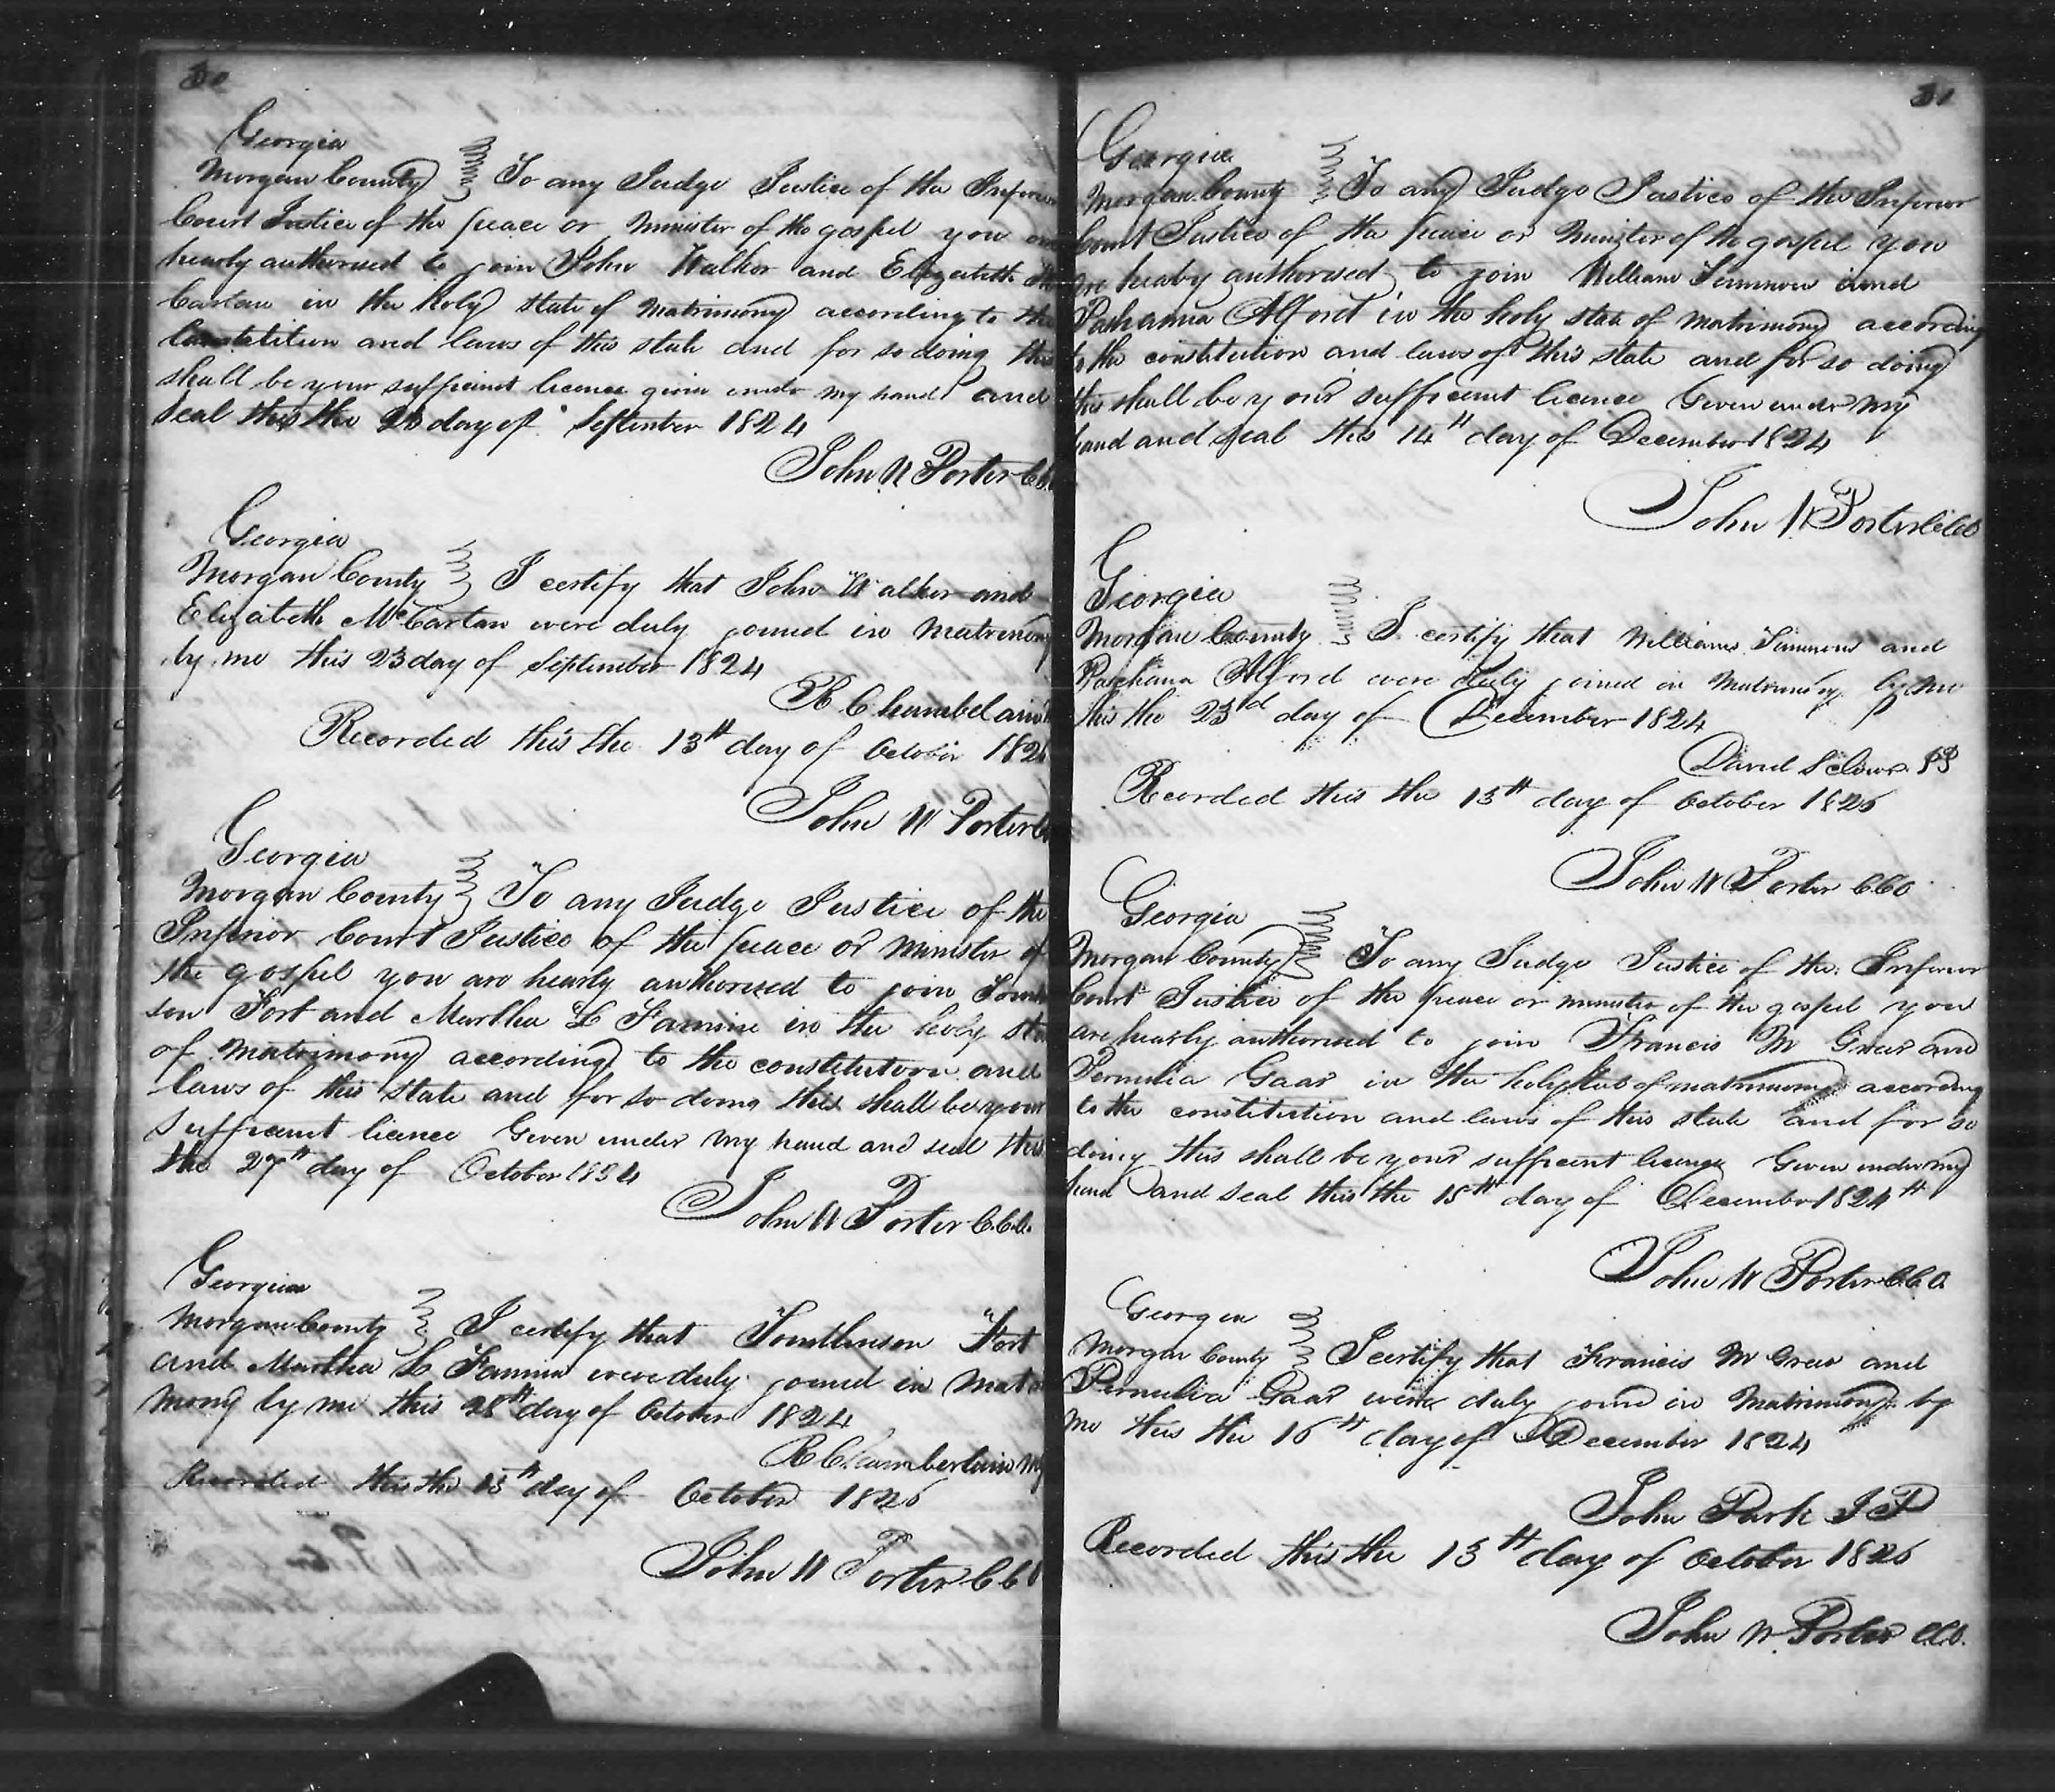 30
Georgia
Morgan County To any Judge Justice of the Inferior
Court Justice of the peace or Minister of the gospel you are
hearly authorised to join John Walker and Elizabeth Mc
Cartan in the holy state of matrimony according to the
Constitution and laws of this state and for so doing this
shall be your suffecient licence given under my hand and
seal this the 23 day of September 1824
John W Porter C.C.
Georgia
Morgan County I certify that John Walker and
Elizabeth McCartan were duly joined in matrimony
by me this 23 day of September 1824
R Chambelain
Recorded this the 13th day of October 182
John W Porter
Georgia
Morgan County To any Judge Justice of the
Inferior Court Justice of the peace or Minister of
the gospel you are hearly authorised to join Tomlin
son Fort and Martha L Fannin in the holy state
of matrimony according to the constitution and
laws of this state and for so doing this shall be your
suffecient licence Given under my hand and seal this
the 27th day of October 1824
John W Porter C.C.C.
Georgia
Morgan County I certify that Tomlinson Fort
and Martha L Fannin were duly joined in Matri
mony by me this 28th day of October 1824
R Chamberlain
Recorded this the 13th day of October 1826
John W Porter CCO
31
Georgia
Morgan County To any Judge Justice of the Inferior
Court Justice of the peice or Minister of the gospel you
are heraby authorised to join William Simmons and
Pashanna Alford in the holy state of matrimony according
to the constitution and laws of this state and for so doing
this shall be your suffecient licence Given under my
hand and seal this 14th day of December 1824
John W Porter CCO
Georgia
Morgan County I certify that William Simmons and
Paschana Alford were duly joined in Matrimony by me
this the 23d day of December 1824
David JP
Recorded this the 13th day of October 1826
John W Porter CCO
Georgia
Morgan County To any Judge Justice of the Inferior
Court Justice of the peace or minister of the gospel you
are hearly authorised to join Francis M Grew and
Permelia Gaar in the holy state of matrimony according
to the constitution and laws of this state and for so
doing this shall be your suffecient licence Given under my
hand and seal this the 15th day of December 1824th
John W Porter C.C.O.
Georgia
Morgan County I certify that Francis M Grew and
Permelia Gaar were duly joined in Matrimony by
me this the 16th day of December 1824
John Park JP
Recorded this the 13th day of October 1826
John W. Porter C.C.O.